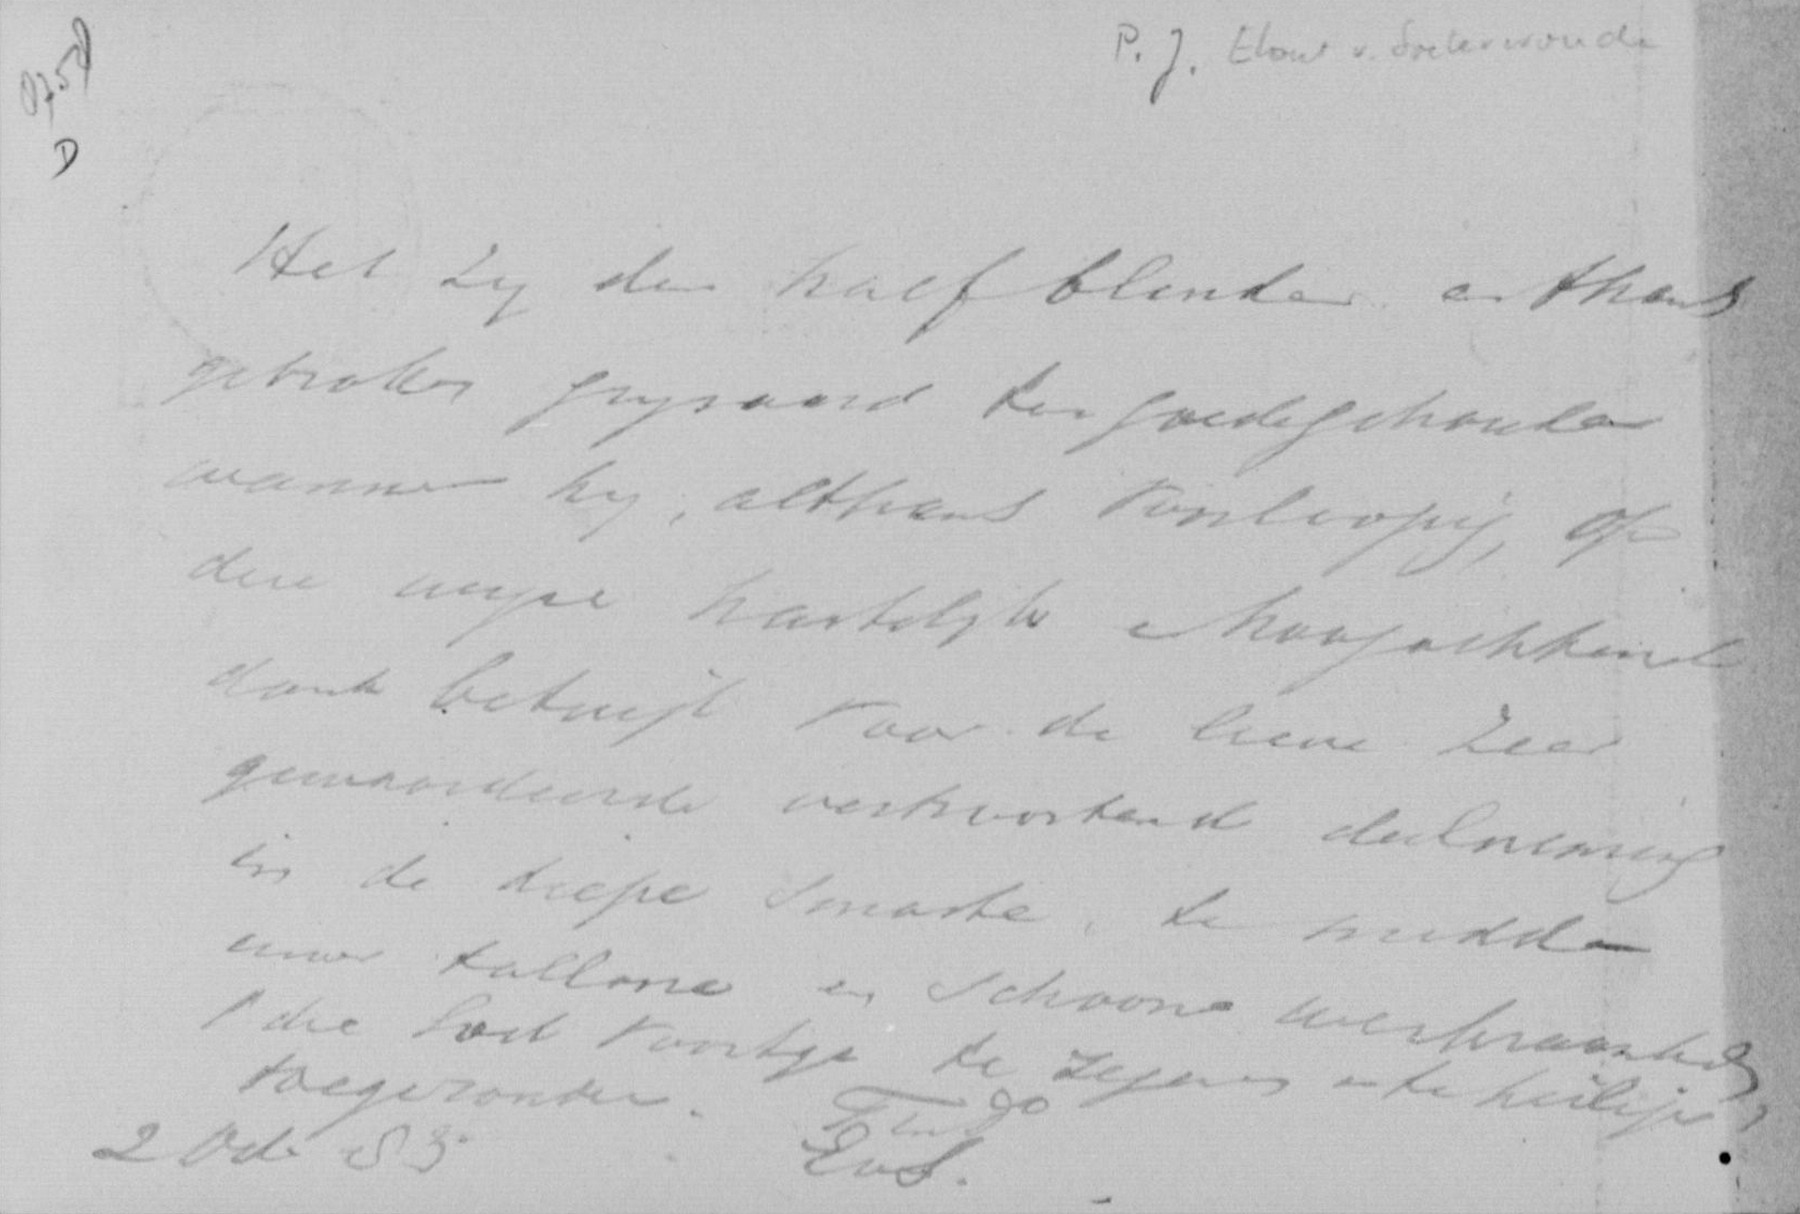 P. J. Elout v. Soeterwoude
D
Het zij den half blinden en thans
gebroken grijsaard ten goede gehouden
wanneer hij, althans voorloopig, op
deze wijze hartelijk en hoogachtend
dank betuigt voor de lieve zeer
gewaardeerde vertroostend deelneming
in de diepe smarte, te midden
uwer tallooze en schoone werkzaamheden,
die God voortga te zegenen en te heiligen
toegezonden.
2 Oct. 83